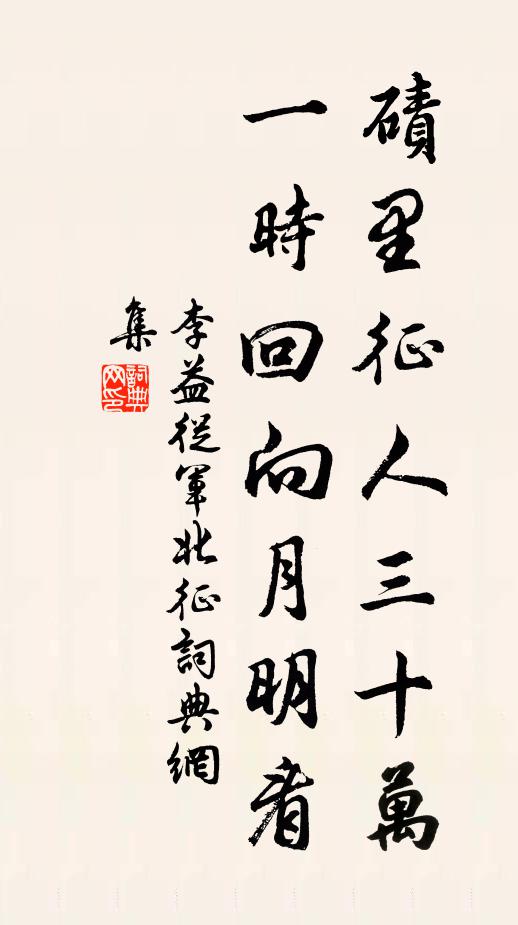 磧里征人三十萬
一時回向月明看
李益從軍北征詞典網
集
詞典
网印